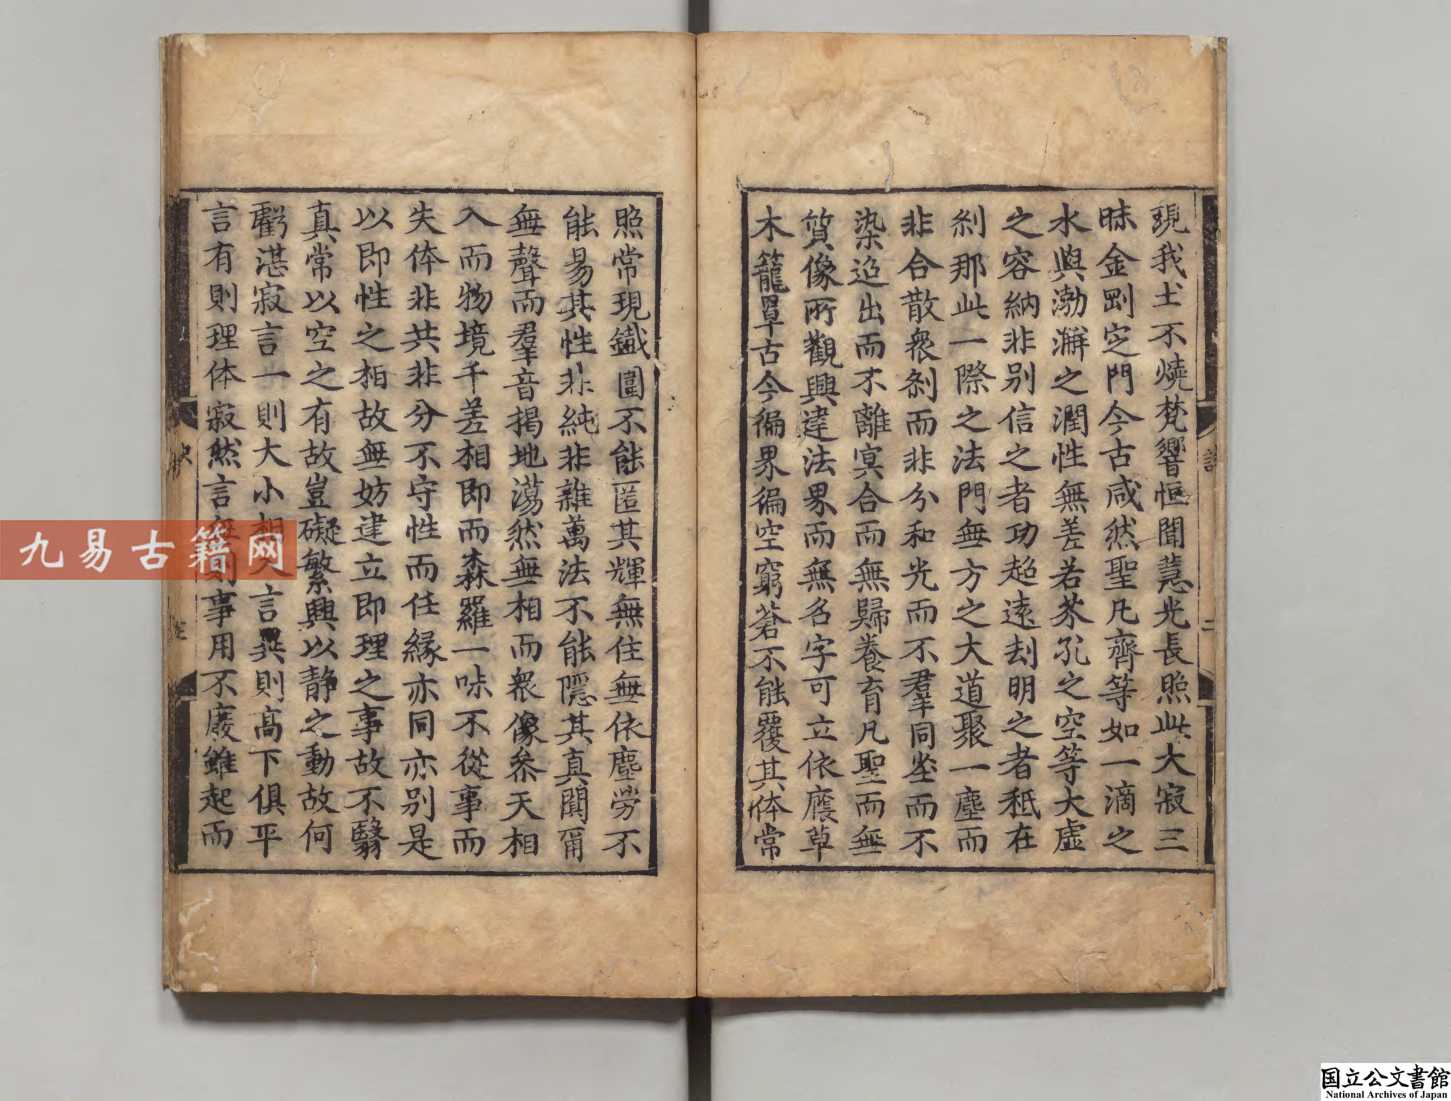 現我土不燒梵響恒聞慧光長照此大寂三
昧金剛定門今古咸然聖凡齊等如一滴之
水與渤澥之潤性無差若芥孔之空等大虛
之容納非别信之者功超遠刦明之者秪在
刹那此一際之法門無方之大道聚一塵而
非合散衆刹而非分和光而不羣同塵而不
染迨出而不離冥合而無歸養育凡聖而無
質像所觀興違法界而無名字可立依廕草
木籠罩古今徧界徧空穹蒼不能覆其体常
照常現鐵圍不能匿其輝無住無依塵勞不
能易其性非純非雜萬法不能隱其真闃爾
無聲而羣音揭地蕩然無相而衆像叅天相
入而物境千差相即而森羅一味不從事而
失体非共非分不守性而任緣亦同亦别是
以即性之相故無妨建立即理之事故不翳
真常以空之有故豈礙繁興以静之動故何
虧湛寂言一則大小相入言異則高下俱平
言有則理体寂然言無則事用不廢雖起而
九易古籍网
国立公文書館
National Archives of Japan